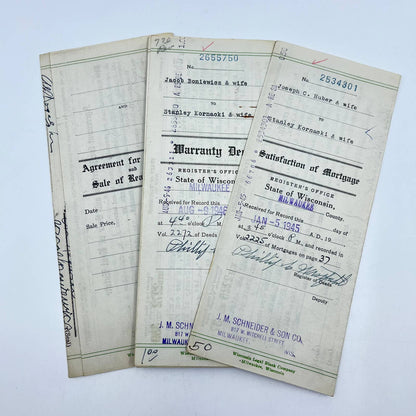 AND
Agreement for
and
Sale of Rea
Date
Sale Price,
720
2655750
Jacob Boniewicz & wife
TO
Stanley Kornacki & wife
Warranty De
REGISTER'S OFFICE
State of Wisconsin
MILWAUKEE
Received for Record this
AUG -8 1946
4 40 o'clock P. M.
Vol. 2272 of Deeds
J. M. SCHNEIDER
817 W. MIT
MILWAUKEE,
Wisconsin Legal
Milwaukee
1.00
2534301
Joseph C. Huber & wife
TO
Stanley Kornacki & wife
Satisfaction of Mortgage
REGISTER'S OFFICE
State of Wisconsin,
MILWAUKEE County.
Received for Record this day of
JAN -5 1945 A. D., 19
at 3 45 o'clock P. M., and recorded in
Vol. 2225 of Mortgages on page 37
Register of Deeds
Deputy
J. M. SCHNEIDER & SON CO.
817 W. MITCHELL STREET
MILWAUKEE, WIS.
50
Wisconsin Legal Blank Company
Milwaukee, Wisconsin